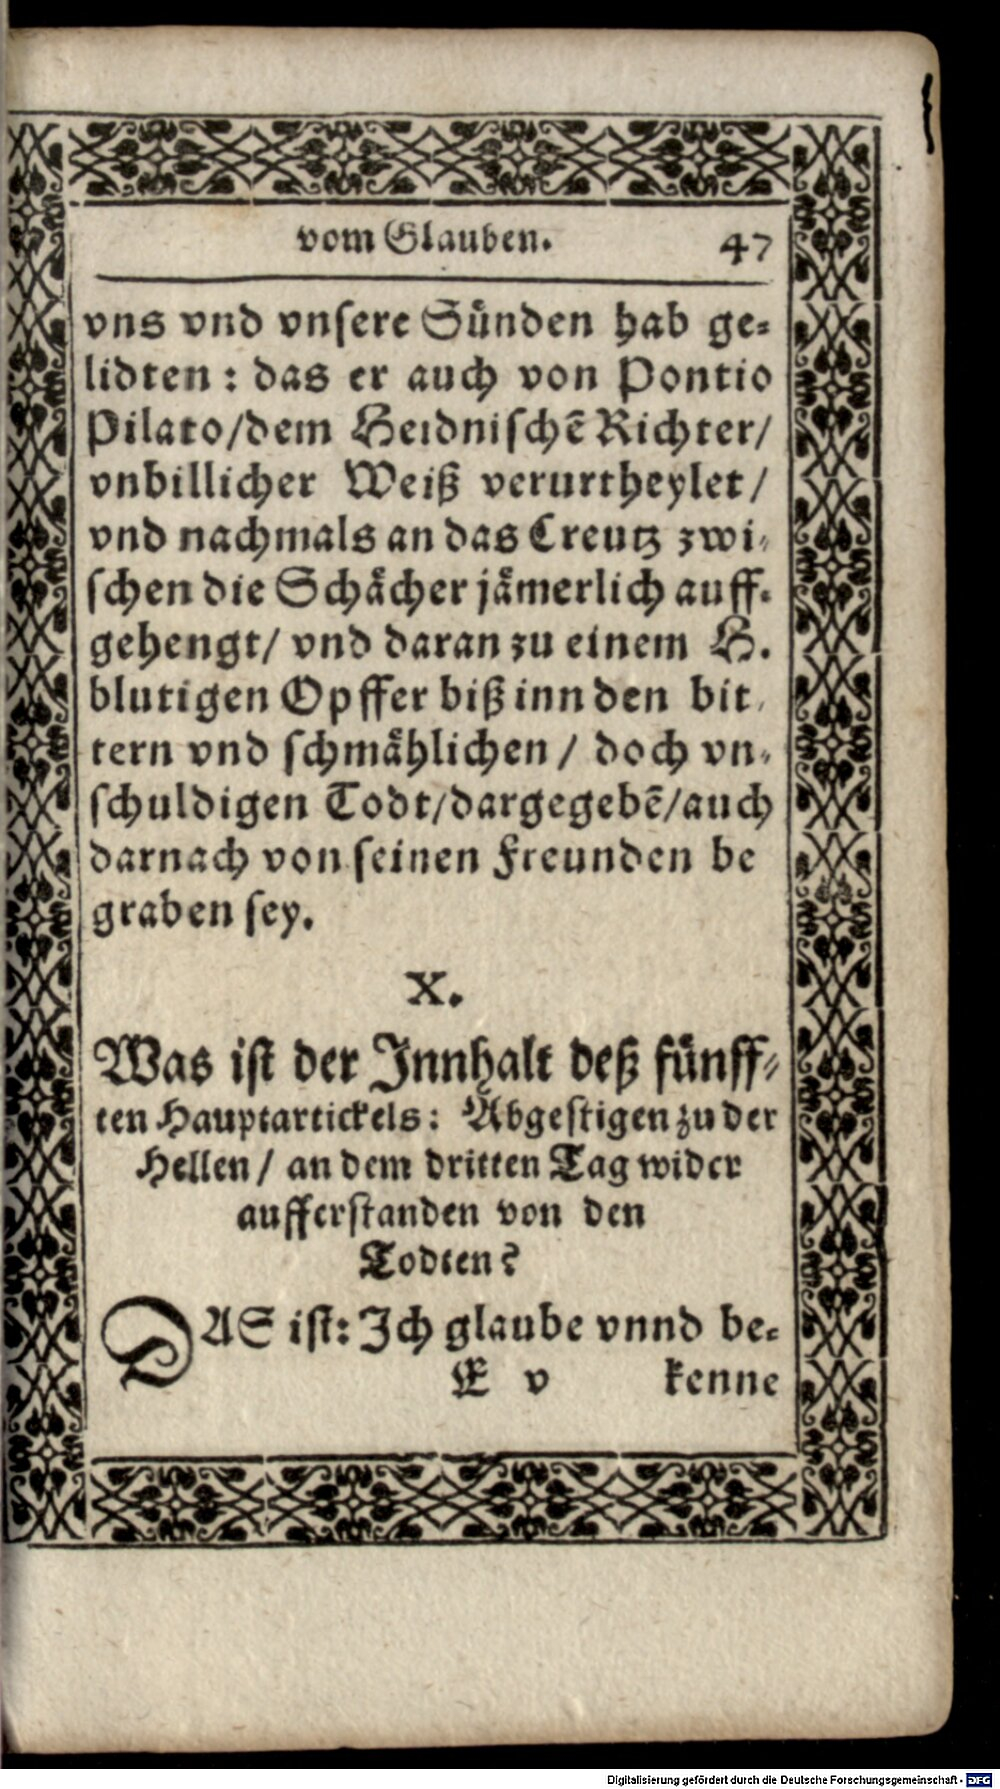 vom Glauben. 47
vns vnd vnsere Sünden hab ge-
lidten: das er auch von Pontio
Pilato/dem Heidnischẽ Richter/
vnbillicher Weiß verurtheylet/
vnd nachmals an das Creutz zwi-
schen die Schächer jämerlich auff-
gehengt/ vnd daran zu einem H.
blutigen Opffer biß inn den bit-
tern vnd schmählichen/ doch vn-
schuldigen Todt/dargegebẽ/auch
darnach von seinen Freunden be
graben sey.
X.
Was ist der Innhalt deß fünff-
ten Hauptartickels: Abgestigen zu der
Hellen/ an dem dritten Tag wider
aufferstanden von den
Todten?
DAS ist: Ich glaube vnnd be-
E v kenne
Digitalisierung gefördert durch die Deutsche Forschungsgemeinschaft - DFG